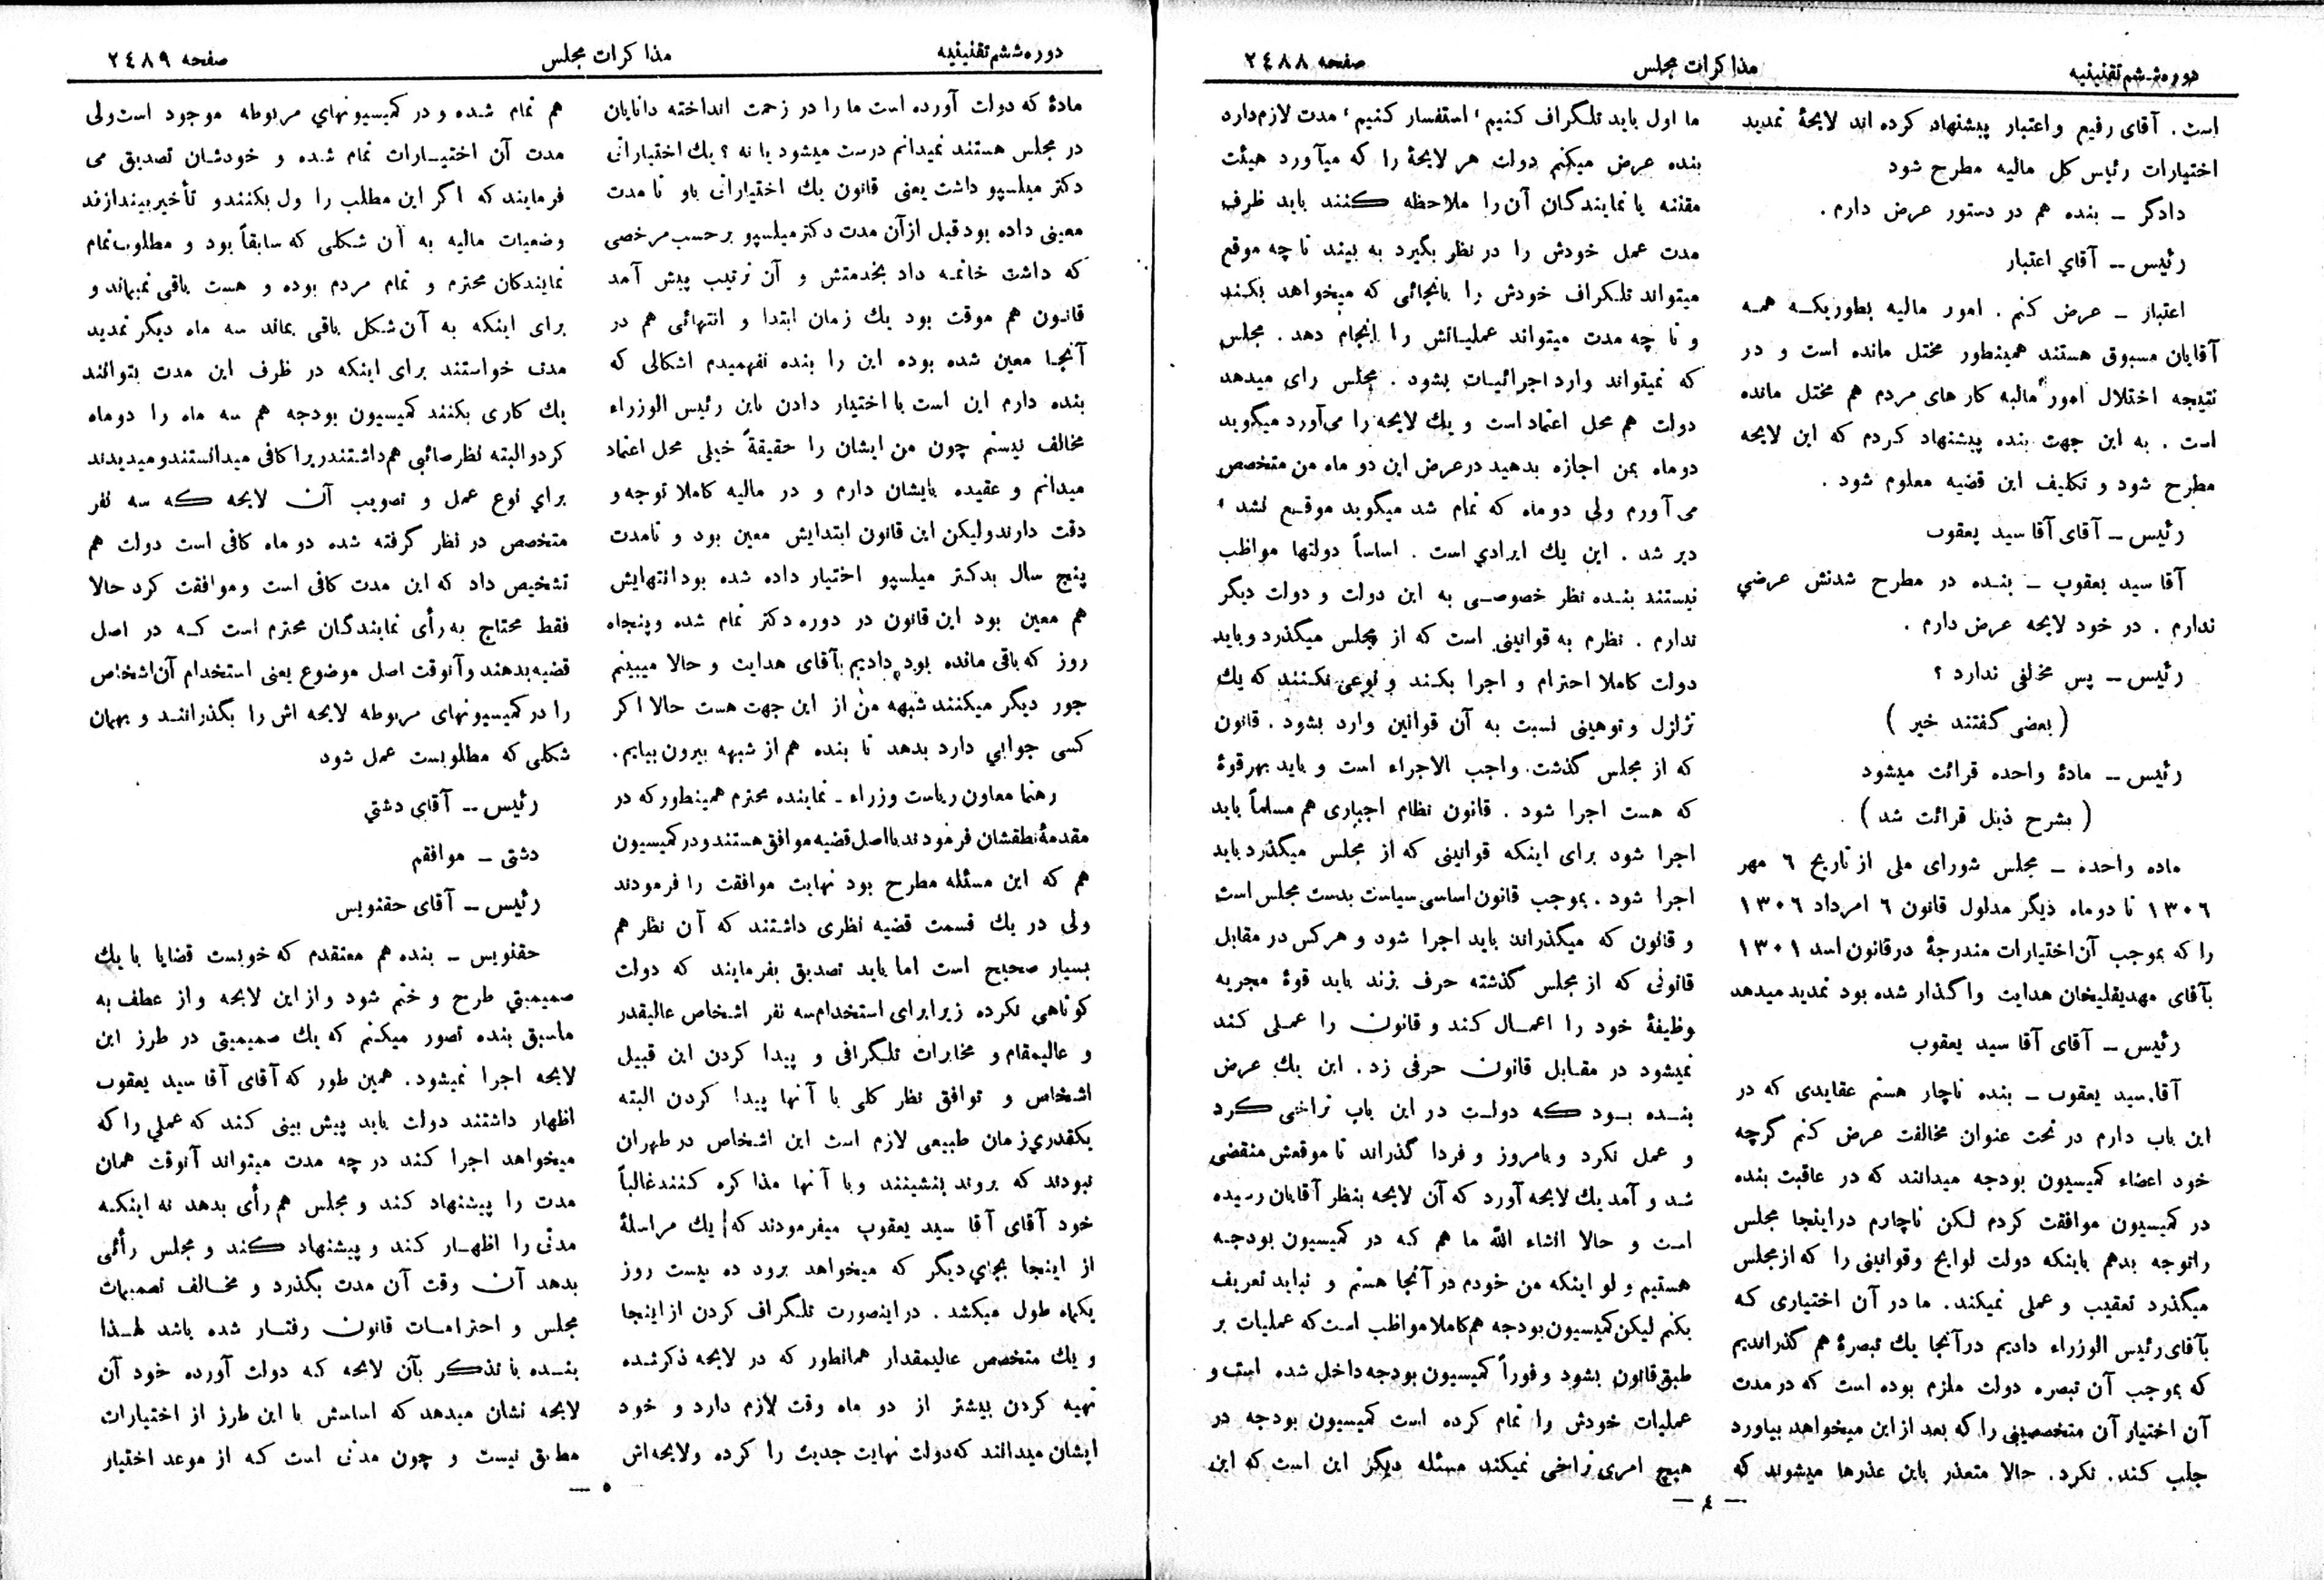 دوره ششم تقنینیه
مذاکرات مجلس
صفحه ۲٤۸۸
است . آقای رفیع و اعتبار پیشنهاد کرده اند لایحهٔ تمدید
اختیارات رئیس کل مالیه مطرح شود
دادگر – بنده هم در دستور عرض دارم .
رئیس – آقای اعتبار
اعتبار – عرض کنم . امور مالیه بطوریکه همه
آقایان مسبوق هستند همینطور مختل مانده است و در
نتیجه اختلال امور مالیه کار های مردم هم مختل مانده
است . به این جهت بنده پیشنهاد کردم که این لایحه
مطرح شود و تکلیف این قضیه معلوم شود .
رئیس – آقای آقا سید یعقوب
آقا سید یعقوب – بنده در مطرح شدنش عرضی
ندارم . در خود لایحه عرض دارم .
رئیس – پس مخالفی ندارد ؟
( بعضی گفتند خیر )
رئیس – مادهٔ واحده قرائت میشود
( بشرح ذیل قرائت شد )
ماده واحده – مجلس شورای ملی از تاریخ ٦ مهر
۱۳۰٦ تا دو ماه دیگر مدلول قانون ٦ امرداد ۱۳۰٦
را که بموجب آن اختیارات مندرجهٔ در قانون اسد ۱۳۰۱
بآقای مهدیقلیخان هدایت واگذار شده بود تمدید میدهد
رئیس – آقای آقا سید یعقوب
آقا سید یعقوب – بنده ناچار هستم عقایدی که در
این باب دارم در تحت عنوان مخالفت عرض کنم گرچه
خود اعضاء کمیسیون بودجه میدانند که در عاقبت بنده
در کمیسیون موافقت کردم لکن ناچارم در اینجا مجلس
را توجه بدهم باینکه دولت لوایح و قوانینی را که از مجلس
میگذرد تعقیب و عملی نمیکند . ما در آن اختیاری که
بآقای رئیس الوزراء دادیم در آنجا یك تبصرهٔ هم گذراندیم
که بموجب آن تبصره دولت ملزم بوده است که در مدت
آن اختیار آن متخصصینی را که بعد از این میخواهد بیاورد
جلب کند . نکرد . حالا متعذر باین عذرها میشوند که
ما اول باید تلگراف کنیم ، استفسار کنیم ، مدت لازم دارد
بنده عرض میکنم دولت هر لایحهٔ را که میآورد هیئت
مقننه یا نمایندگان آن را ملاحظه کنند باید ظرف
مدت عمل خودش را در نظر بگیرد به بیند تا چه موقع
میتواند تلگراف خودش را بآنجائی که میخواهد بکند
و تا چه مدت میتواند عملیاتش را انجام دهد . مجلس
که نمیتواند وارد اجرائیات بشود . مجلس رای میدهد
دولت هم محل اعتماد است و یك لایحه را می‌آورد میگوید
دو ماه بمن اجازه بدهید در عرض این دو ماه من متخصص
می آورم ولی دو ماه که تمام شد میگوید موقع نشد ،
دیر شد . این یك ایرادی است . اساساً دولتها مواظب
نیستند بنده نظر خصوصی به این دولت و دولت دیگر
ندارم . نظرم به قوانینی است که از مجلس میگذرد و باید
دولت کاملا احترام و اجرا بکند و نوعی نکنند که یك
تزلزل و توهینی نسبت به آن قوانین وارد بشود . قانون
که از مجلس گذشت واجب الاجراء است و باید بهر قوهٔ
که هست اجرا شود . قانون نظام اجباری هم مسلماً باید
اجرا شود برای اینکه قوانینی که از مجلس میگذرد باید
اجرا شود . بموجب قانون اساسی سیاست بدست مجلس است
و قانون که میگذراند باید اجرا شود و هر کس در مقابل
قانونی که از مجلس گذشته حرف بزند باید قوهٔ مجریه
وظیفهٔ خود را اعمال کند و قانون را عملی کند
نمیشود در مقابل قانون حرفی زد . این یك عرض
بنده بود که دولت در این باب تراخی کرد
و عمل نکرد و بامروز و فردا گذراند تا موقعش منقضی
شد و آمد یك لایحه آورد که آن لایحه بنظر آقایان رسیده
است و حالا انشاء الله ما هم که در کمیسیون بودجه
هستیم و لو اینکه من خودم در آنجا هستم و نباید تعریف
بکنم لیکن کمیسیون بودجه هم کاملا مواظب است که عملیات بر
طبق قانون بشود و فوراً کمیسیون بودجه داخل شده است و
عملیات خودش را تمام کرده است کمیسیون بودجه در
هیچ امری تراخی نمیکند مسئله دیگر این است که این
– ٤ –
دوره ششم تقنینیه
مذاکرات مجلس
صفحه ۲٤۸۹
مادهٔ که دولت آورده است ما را در زحمت انداخته دانایان
در مجلس هستند نمیدانم درست میشود یا نه ؟ یك اختیاراتی
دکتر میلسپو داشت یعنی قانون یك اختیاراتی باو تا مدت
معینی داده بود قبل از آن مدت دکتر میلسپو بر حسب مرخصی
که داشت خاتمه داد بخدمتش و آن ترتیب پیش آمد
قانون هم موقت بود یك زمان ابتدا و انتهائی هم در
آنجا معین شده بوده این را بنده نفهمیدم اشکالی که
بنده دارم این است با اختیار دادن باین رئیس الوزراء
مخالف نیستم چون من ایشان را حقیقةً خیلی محل اعتماد
میدانم و عقیده بایشان دارم و در مالیه کاملا توجه و
دقت دارند ولیکن این قانون ابتدایش معین بود و تا مدت
پنج سال بدکتر میلسپو اختیار داده شده بود انتهایش
هم معین بود این قانون در دوره دکتر تمام شده و پنجاه
روز که باقی مانده بود دادیم بآقای هدایت و حالا میبینم
جور دیگر میکنند شبهه من از این جهت هست حالا اگر
کسی جوابي دارد بدهد تا بنده هم از شبهه بیرون بیایم .
رهنما معاون ریاست وزراء – نماینده محترم همینطور که در
مقدمهٔ نطقشان فرمودند با اصل قضیه موافق هستند و در کمیسیون
هم که این مسئله مطرح بود نهایت موافقت را فرمودند
ولی در یك قسمت قضیه نظری داشتند که آن نظر هم
بسیار صحیح است اما باید تصدیق بفرمایند که دولت
کوتاهی نکرده زیرا برای استخدام سه نفر اشخاص عالیقدر
و عالیمقام و مخابرات تلگرافی و پیدا کردن این قبیل
اشخاص و توافق نظر کلی با آنها پیدا کردن البته
یکقدري زمان طبیعی لازم است این اشخاص در طهران
نبودند که بروند بنشینند و با آنها مذاکره کنند غالباً
خود آقای آقا سید یعقوب میفرمودند که یك مراسلهٔ
از اینجا بجای دیگر که میخواهد برود ده بیست روز
یکماه طول میکشد . در اینصورت تلگراف کردن از اینجا
و یك متخصص عالیمقدار همانطور که در لایحه ذکر شده
تهیه کردن بیشتر از دو ماه وقت لازم دارد و خود
ایشان میدانند که دولت نهایت جدیت را کرده و لایحه اش
هم تمام شده و در کمیسیونهاي مربوطه موجود است ولی
مدت آن اختیارات تمام شده و خودشان تصدیق می
فرمایند که اگر این مطلب را ول بکنند و تأخیر بیندازند
وضعیات مالیه به آن شکلی که سابقاً بود و مطلوب تمام
نمایندگان محترم و تمام مردم بوده و هست باقی نمیماند و
برای اینکه به آن شکل باقی بماند سه ماه دیگر تمدید
مدت خواستند برای اینکه در ظرف این مدت بتوانند
یك کاری بکنند کمیسیون بودجه هم سه ماه را دو ماه
کرد و البته نظر صائبی هم داشتند زیرا کافی میدانستند و میدیدند
براي نوع عمل و تصویب آن لایحه که سه نفر
متخصص در نظر گرفته شده دو ماه کافی است دولت هم
تشخیص داد که این مدت کافی است و موافقت کرد حالا
فقط محتاج به رأی نمایندگان محترم است که در اصل
قضیه بدهند و آنوقت اصل موضوع یعنی استخدام آن اشخاص
را در کمیسیونهای مربوطه لایحه اش را بگذرانند و بهمان
شکلی که مطلوبست عمل شود
رئیس – آقای دشتي
دشتی – موافقم
رئیس – آقای حقنویس
حقنویس – بنده هم معتقدم که خوبست قضایا با یك
صمیمیتي طرح و ختم شود و از این لایحه و از عطف به
ماسبق بنده تصور میکنم که یك صمیمیتی در طرز این
لایحه اجرا نمیشود . همین طور که آقای آقا سید یعقوب
اظهار داشتند دولت باید پیش بینی کند که عملي را که
میخواهد اجرا کند در چه مدت میتواند آنوقت همان
مدت را پیشنهاد کند و مجلس هم رأی بدهد نه اینکه
مدتی را اظهار کند و پیشنهاد کند و مجلس رأئی
بدهد آن وقت آن مدت بگذرد و مخالف تصمیمات
مجلس و احترامات قانون رفتار شده باشد لهذا
بنده با تذکر بآن لایحه که دولت آورده خود آن
لایحه نشان میدهد که اساسش با این طرز از اختیارات
مطابق نیست و چون مدتی است که از موعد اختیار
– ٥ –